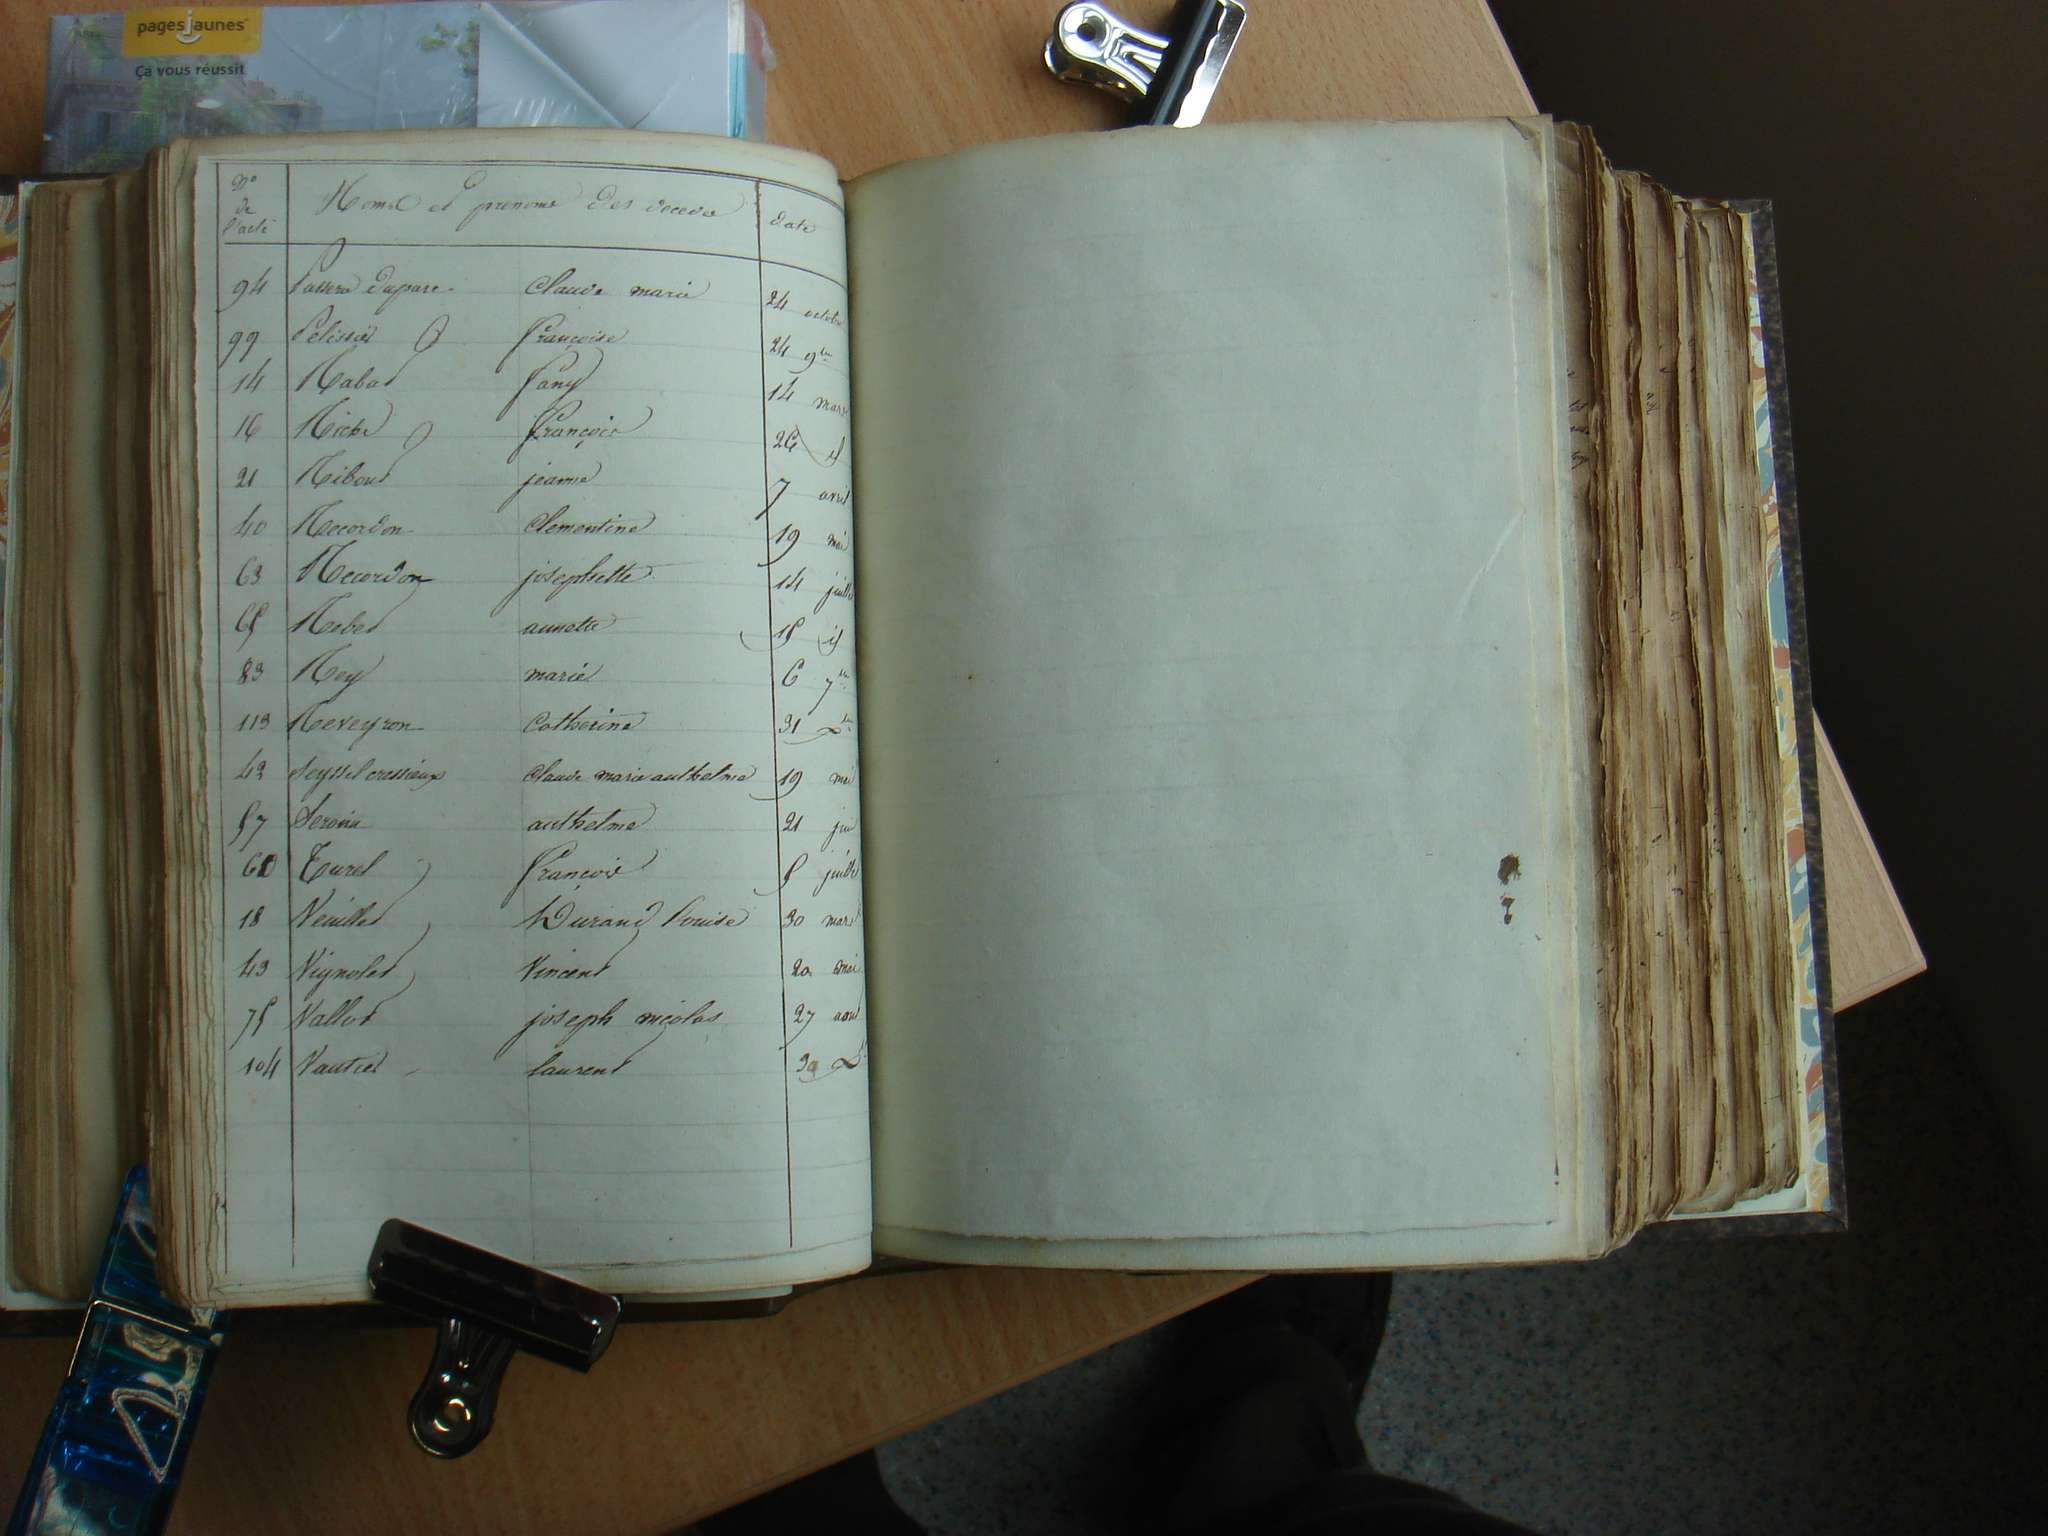 pagesjaunes
Ça vous réussit
N° de l'acte Noms et prenoms des décédés date
94 Passerat Duparc Claude marie 24 octobre
99 Pelissier françoise 24 9bre
14 Rabat fany 14 mars
16 Riche françois 26 id
21 Ribout jeanne 7 avril
40 Recordon Clementine 19 mai
63 Recordon josephette 14 juillet
65 Rebet annette 15 id
83 Rey marie 6 7bre
113 Reveyron Catherine 31 Xbre
42 Seyssel cressieux Claude marie anthelme 19 mai
57 Seroin anthelme 21 juin
60 Turel françois 5 juillet
18 Veuillet Durand Louise 30 mars
43 Vignolet Vincent 20 mai
75 Vallot joseph nicolas 27 aout
104 Vautier laurent Xbre